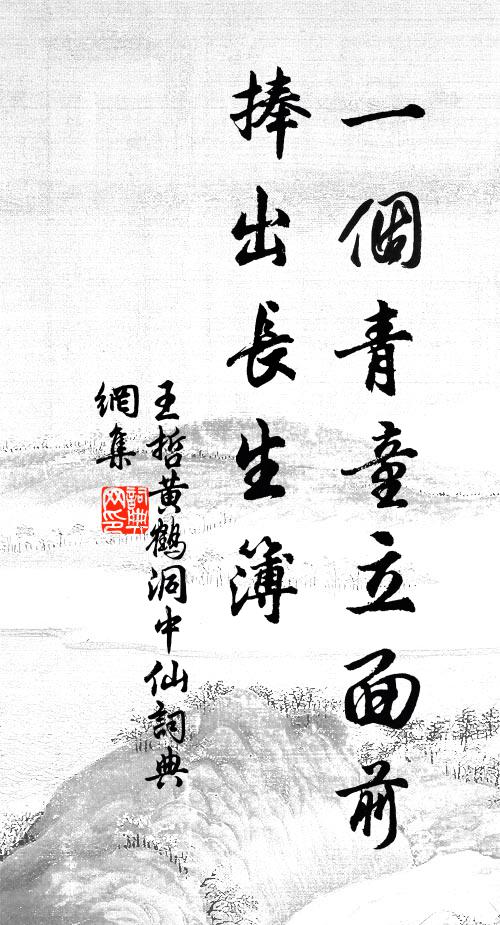 一個青童立面前
捧出長生簿
王哲黃鶴洞中仙詞典
網集
詞典網印